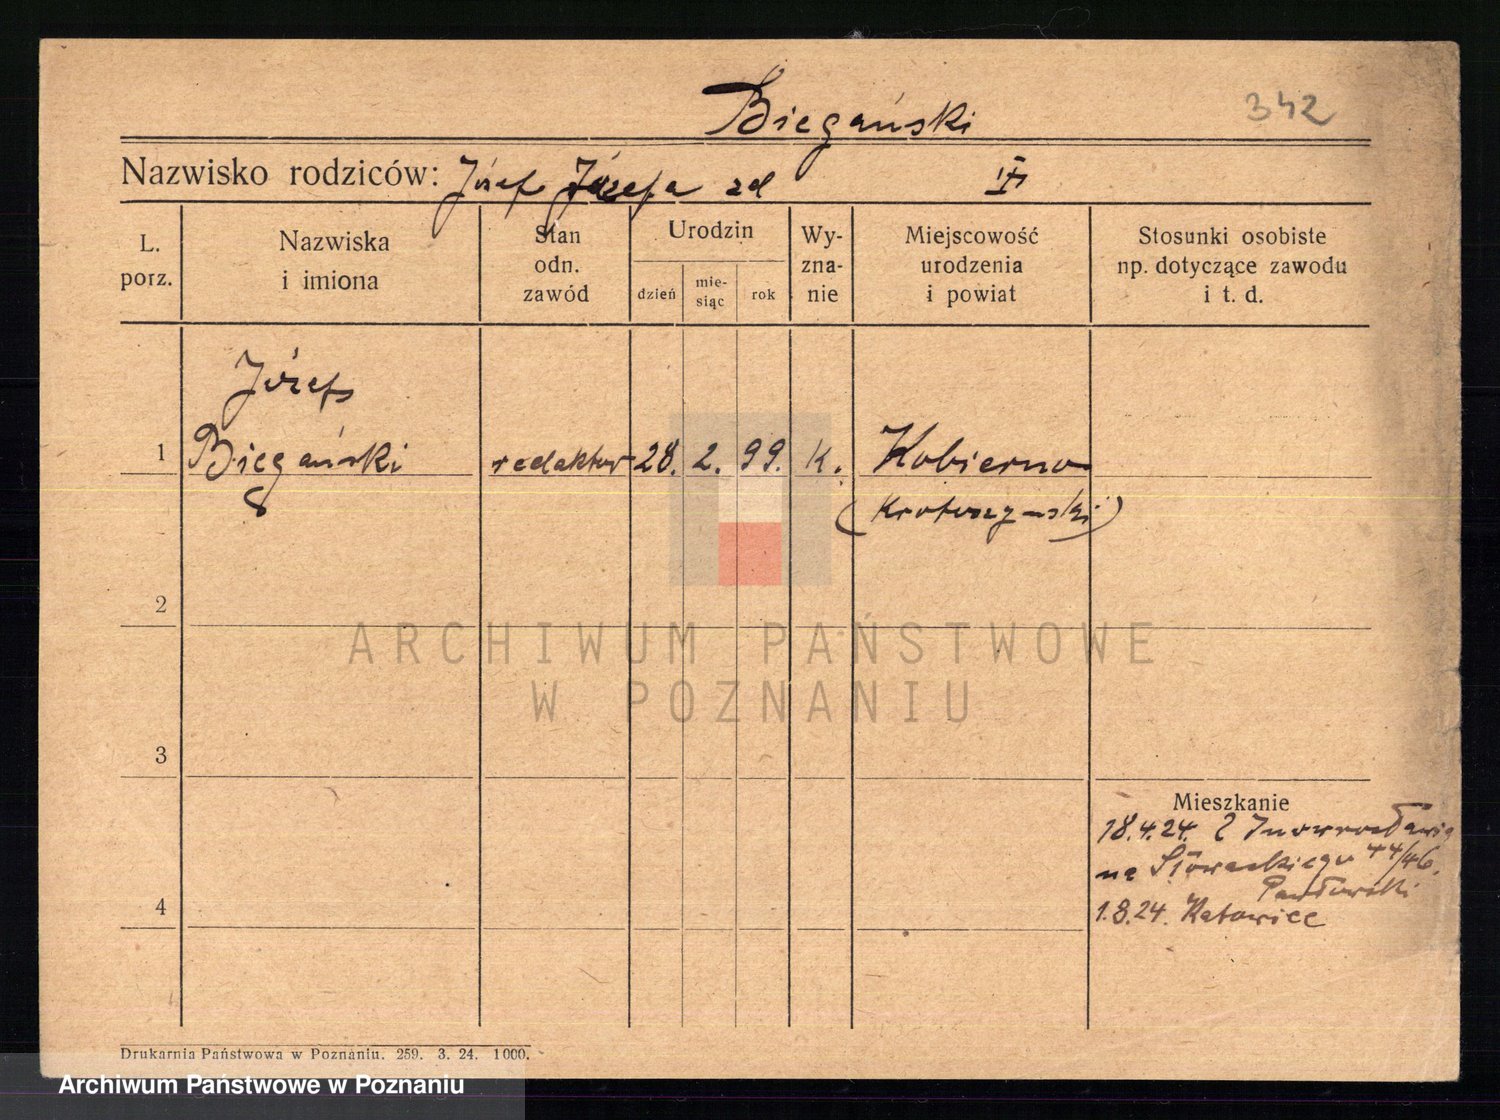 Biegański
342
Nazwisko rodziców: Józef Józefa zd
IV
L. porz.
Nazwiska i imiona
Stan odn. zawód
Urodzin
dzień
mie-
siąc
rok
Wy-
zna-
nie
Miejscowość urodzenia i powiat
Stosunki osobiste np. dotyczące zawodu i t. d.
Józef
1 Biegański redaktor 28. 2. 99. K. Kobierno
8
(Krotoszyński)
2
ARCHIWUM PAŃSTWOWE
W POZNANIU
3
Mieszkanie
18.4.24. z Inowrocławia
na Słowackiego 44/46.
Pawłowski
4
1.8.24. Katowice
Drukarnia Państwowa w Poznaniu. 259. 3. 24. 1000.
Archiwum Państwowe w Poznaniu